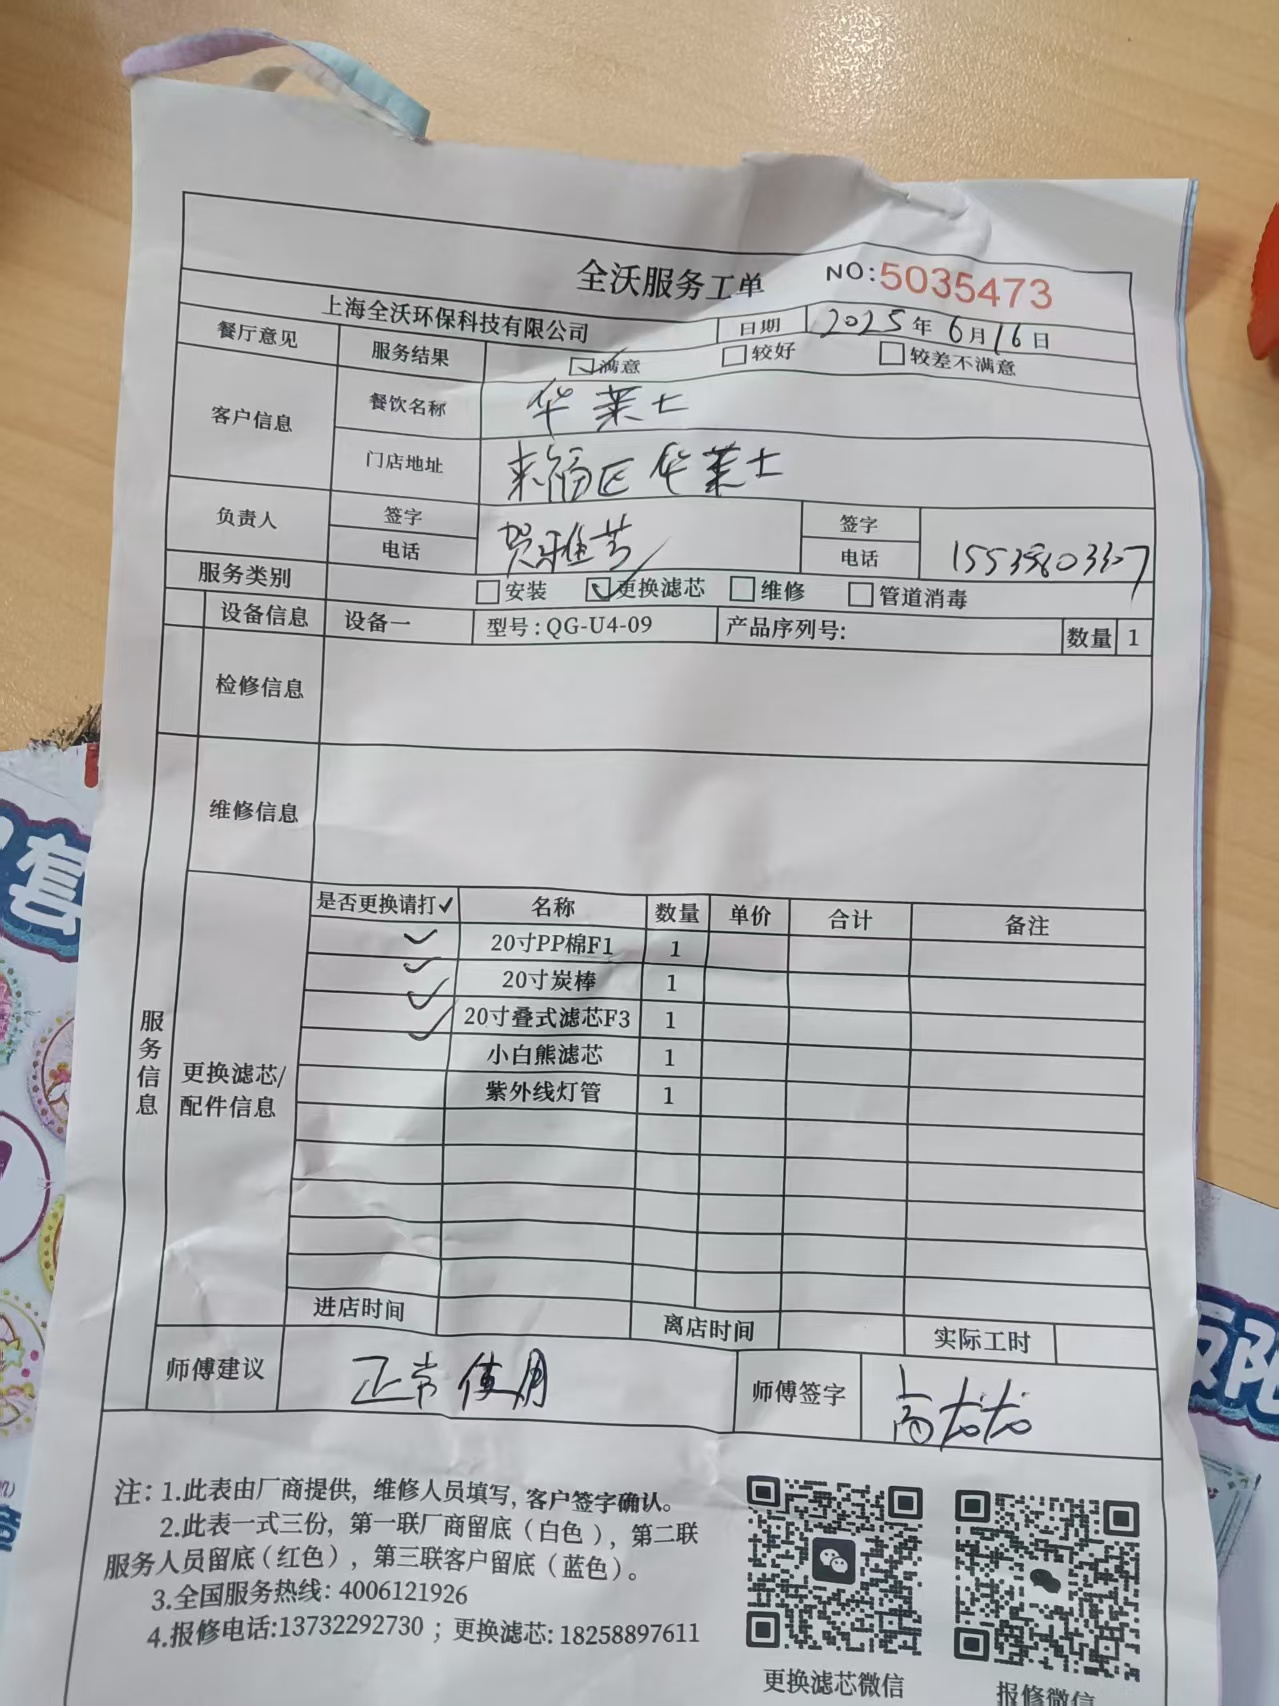 全沃服务工单 NO:5035473
上海全沃环保科技有限公司 日期 2025年6月16日
餐厅意见 服务结果 满意 较好 较差不满意
客户信息 餐饮名称 华莱士
门店地址 来福区华莱士
负责人 签字 贺雅芸 签字
电话 电话
服务类别 安装 更换滤芯 维修 管道消毒
设备信息 设备一 型号:QG-U4-09 产品序列号: 数量 1
检修信息
维修信息
是否更换请打✓ 名称 数量 单价 合计 备注
✓ 20寸PP棉F1 1
✓ 20寸炭棒 1
✓ 20寸叠式滤芯F3 1
✓ 小白熊滤芯 1
紫外线灯管 1
服务信息
更换滤芯/
配件信息
进店时间 离店时间 实际工时
师傅建议 正常使用 师傅签字
注: 1.此表由厂商提供, 维修人员填写, 客户签字确认。
2.此表一式三份, 第一联厂商留底(白色), 第二联
服务人员留底(红色), 第三联客户留底(蓝色)。
3.全国服务热线: 4006121926
4.报修电话:13732292730 ; 更换滤芯: 18258897611
更换滤芯微信 报修微信
套